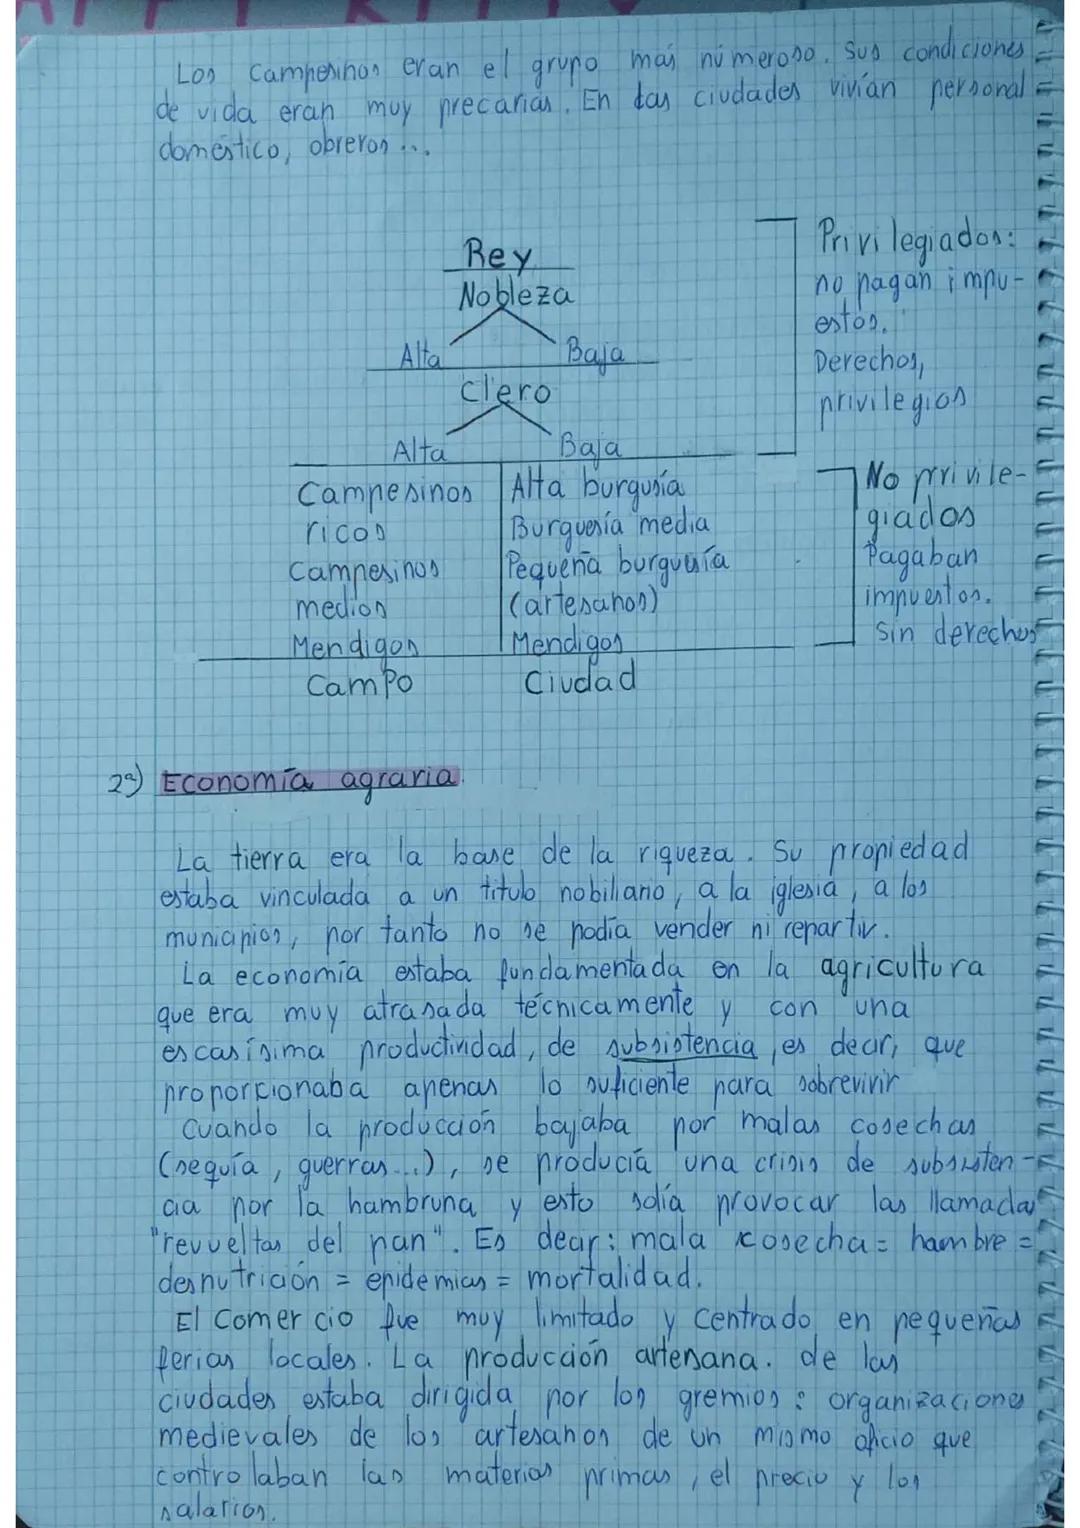 Los campesinos eran el grupo más númeroso. Sus condiciones
de vida eran muy precarias. En las ciudades vivían personal
doméstico, obreros ...
Rey
Nobleza
Alta Baja
Clero
Alta Baja
Privilegiados:
no pagan impu-
estos.
Derechos,
privilegios
Campesinos
ricos
Campesinos
medios
Mendigos
Campo
Alta burgusía
Burguesía media
Pequeña burguesía
(artesanos)
Mendigos
Ciudad
No privile-
giados
Pagaban
impuestos.
Sin derechos
2º) Economía agraria.
La tierra era la base de la riqueza. Su propiedad
estaba vinculada a un titulo nobiliario, a la iglesia, a los
municipios, por tanto no se podía vender ni repartir.
La economía estaba fundamentada en la agricultura
que era muy atrasada técnicamente y con una
escasísima productividad, de subsistencia, es decir, que
proporcionaba apenas lo suficiente para sobrevivir
Cuando la producción bajaba por malas cosechas
(sequía, guerras...), se producía una crisis de subsisten-
cia por la hambruna y esto solía provocar las llamadas
"revueltas del pan". Es decir: mala cosecha = hambre =
desnutrición = epidemias = mortalidad.
El Comercio fue muy limitado y centrado en pequeñas
ferias locales. La producción artesana. de las
ciudades estaba dirigida por los gremios: organizaciones
medievales de los artesanos de un mismo oficio que
controlaban las materias primas, el precio y los
salarios.